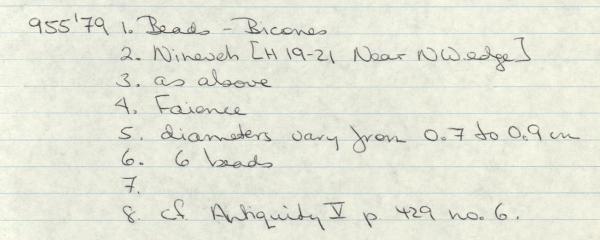 955'79 1. Beads - Bicones
2. Nineveh [H 19-21 Near NW.edge]
3. as above
4. Faience
5. diameters vary from 0.7 to 0.9 cm
6. 6 beads
7.
8. cf. Antiquity V p 429 no. 6.